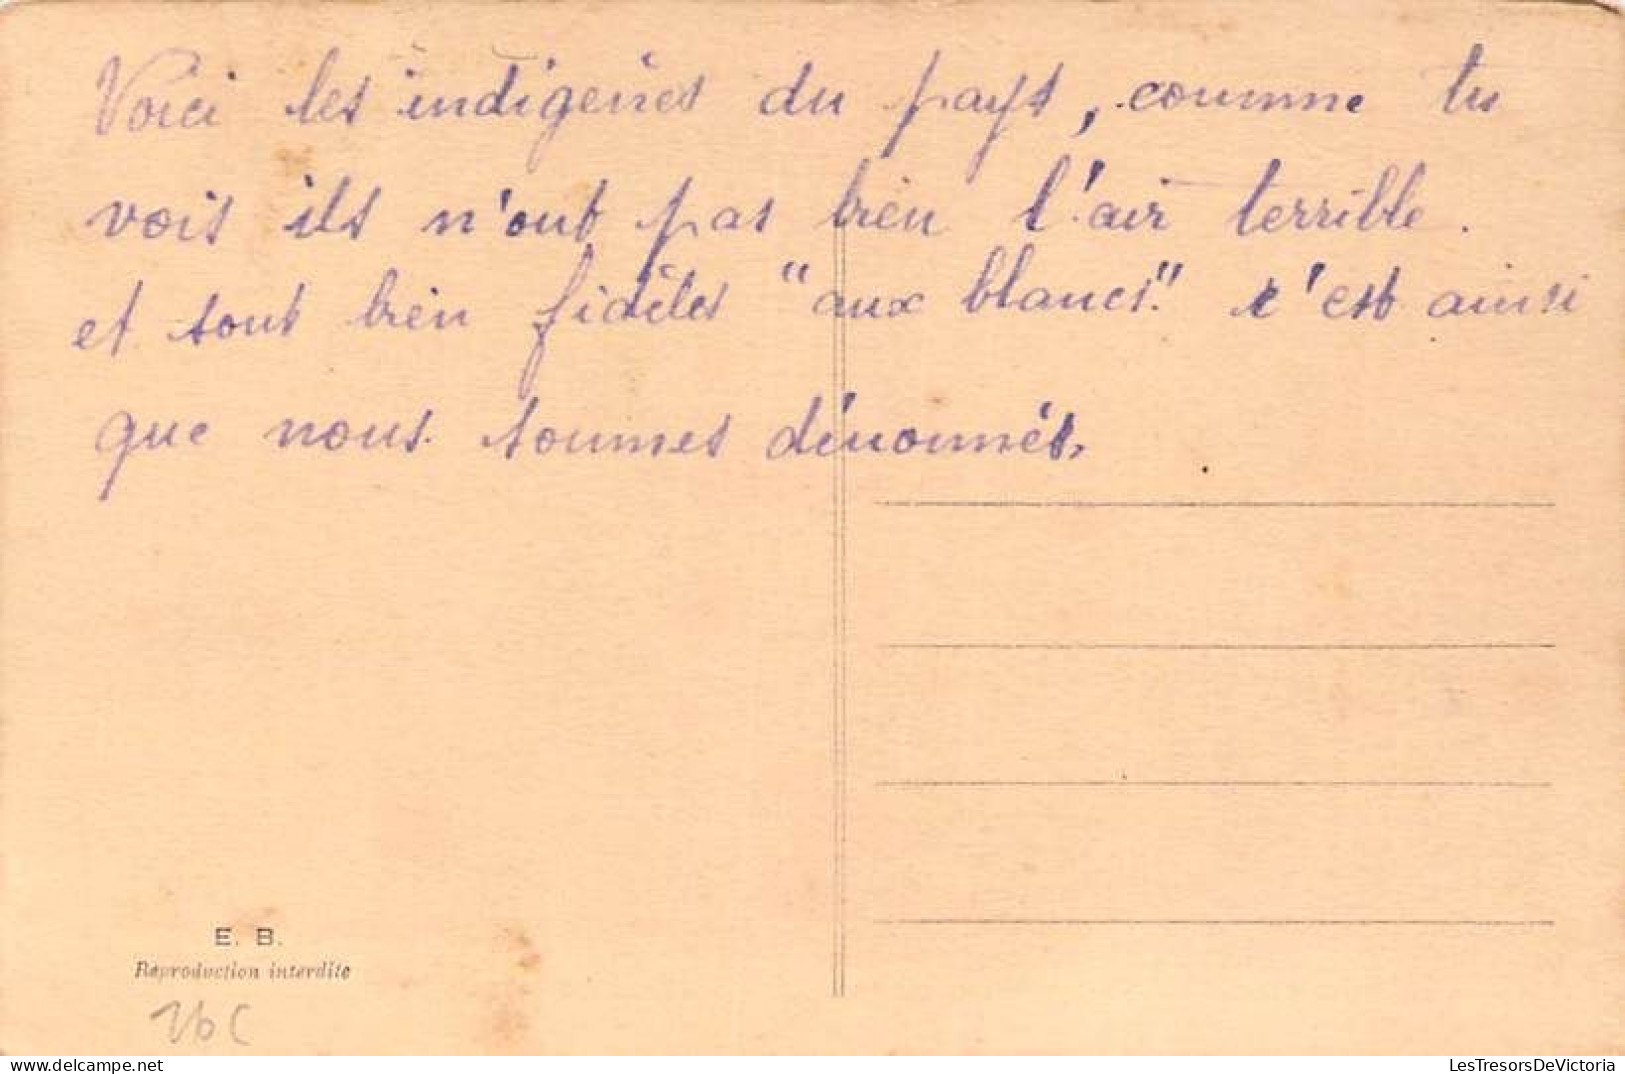 Voici les indigènes du pays, comme tu
vois ils n'ont pas bien l'air terrible.
et sont bien fidèles "aux blancs." c'est ainsi
que nous sommes dénommés.
E. B.
Reproduction interdite
delcampe.net
LesTresorsDeVictoria